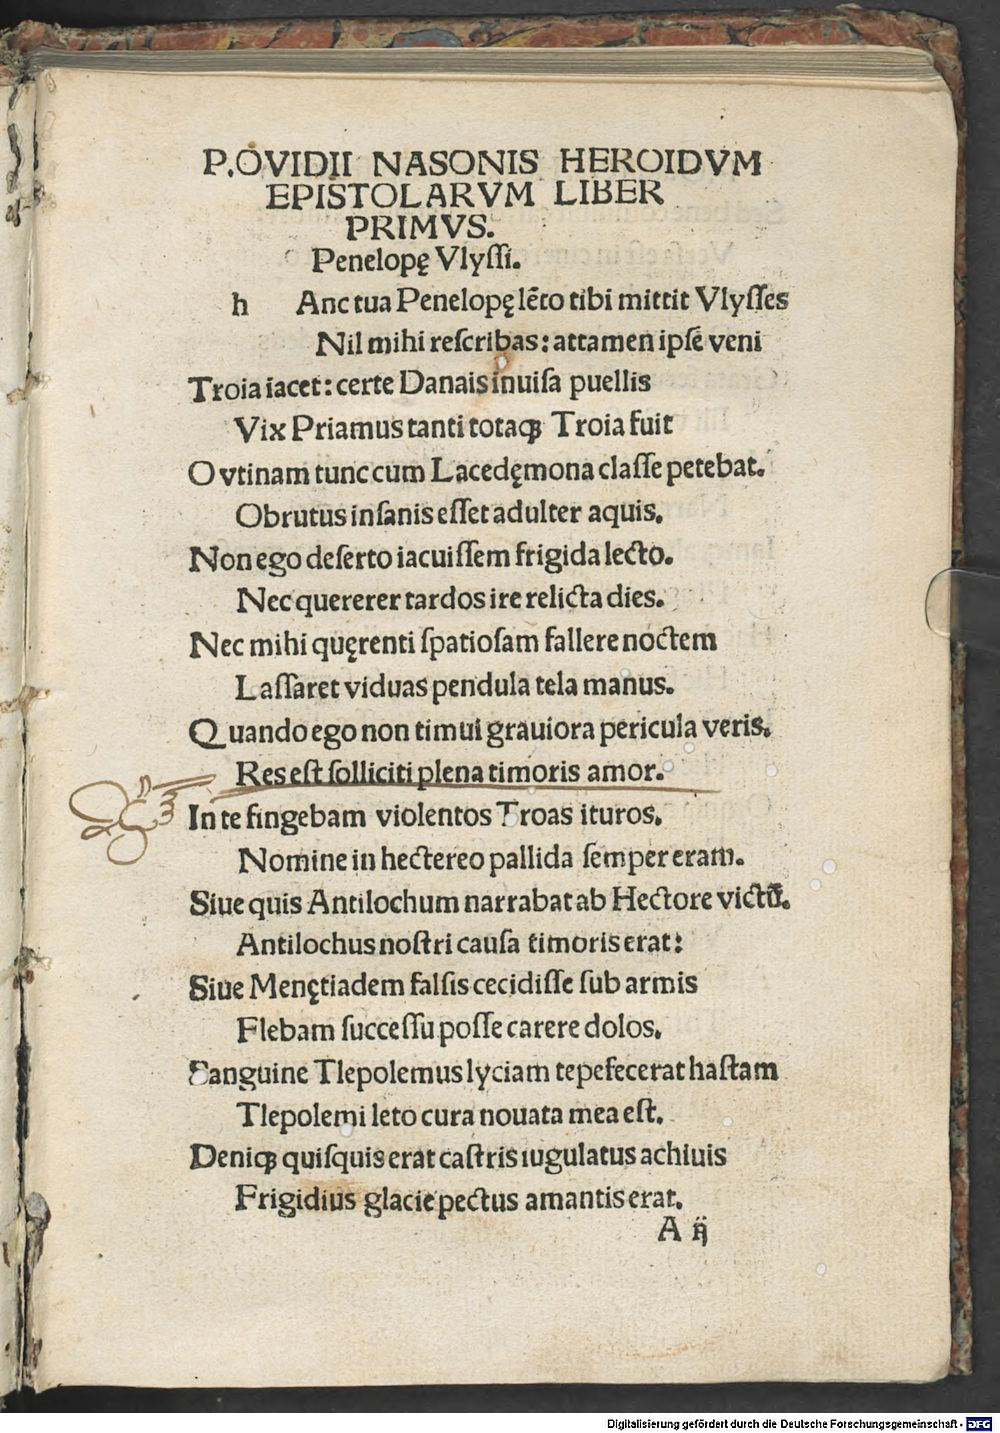 P.OVIDII NASONIS HEROIDVM
EPISTOLARVM LIBER
PRIMVS.
Penelopę Vlyſſi.
h Anc tua Penelopę lēto tibi mittit Vlyſſes
Nil mihi reſcribas: attamen ipſe veni
Troia iacet: certe Danais inuiſa puellis
Vix Priamus tanti totaqꝫ Troia fuit
O vtinam tunc cum Lacedęmona claſſe petebat.
Obrutus inſanis eſſet adulter aquis.
Non ego deſerto iacuiſſem frigida lecto.
Nec quererer tardos ire relicta dies.
Nec mihi quęrenti ſpatioſam fallere noctem
Laſſaret viduas pendula tela manus.
Quando ego non timui grauiora pericula veris.
Res eſt ſolliciti plena timoris amor.
In te fingebam violentos Troas ituros.
Nomine in hectereo pallida ſemper eram.
Siue quis Antilochum narrabat ab Hectore victū.
Antilochus noſtri cauſa timoris erat:
Siue Menętiadem falſis cecidiſſe ſub armis
Flebam ſucceſſu poſſe carere dolos.
Sanguine Tlepolemus lyciam tepefecerat haſtam
Tlepolemi leto cura nouata mea eſt.
Deniqꝫ quiſquis erat caſtris iugulatus achiuis
Frigidius glacie pectus amantis erat.
A ij
Digitalisierung gefördert durch die Deutsche Forschungsgemeinschaft - DFG